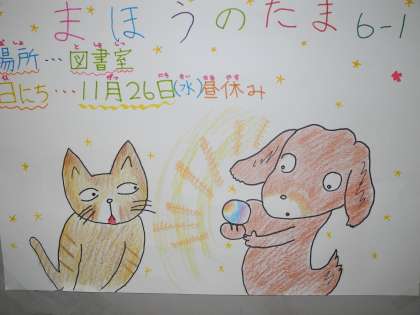 まほうのたま 6-1
場所…図書室
日にち…11月26日(水)昼休み